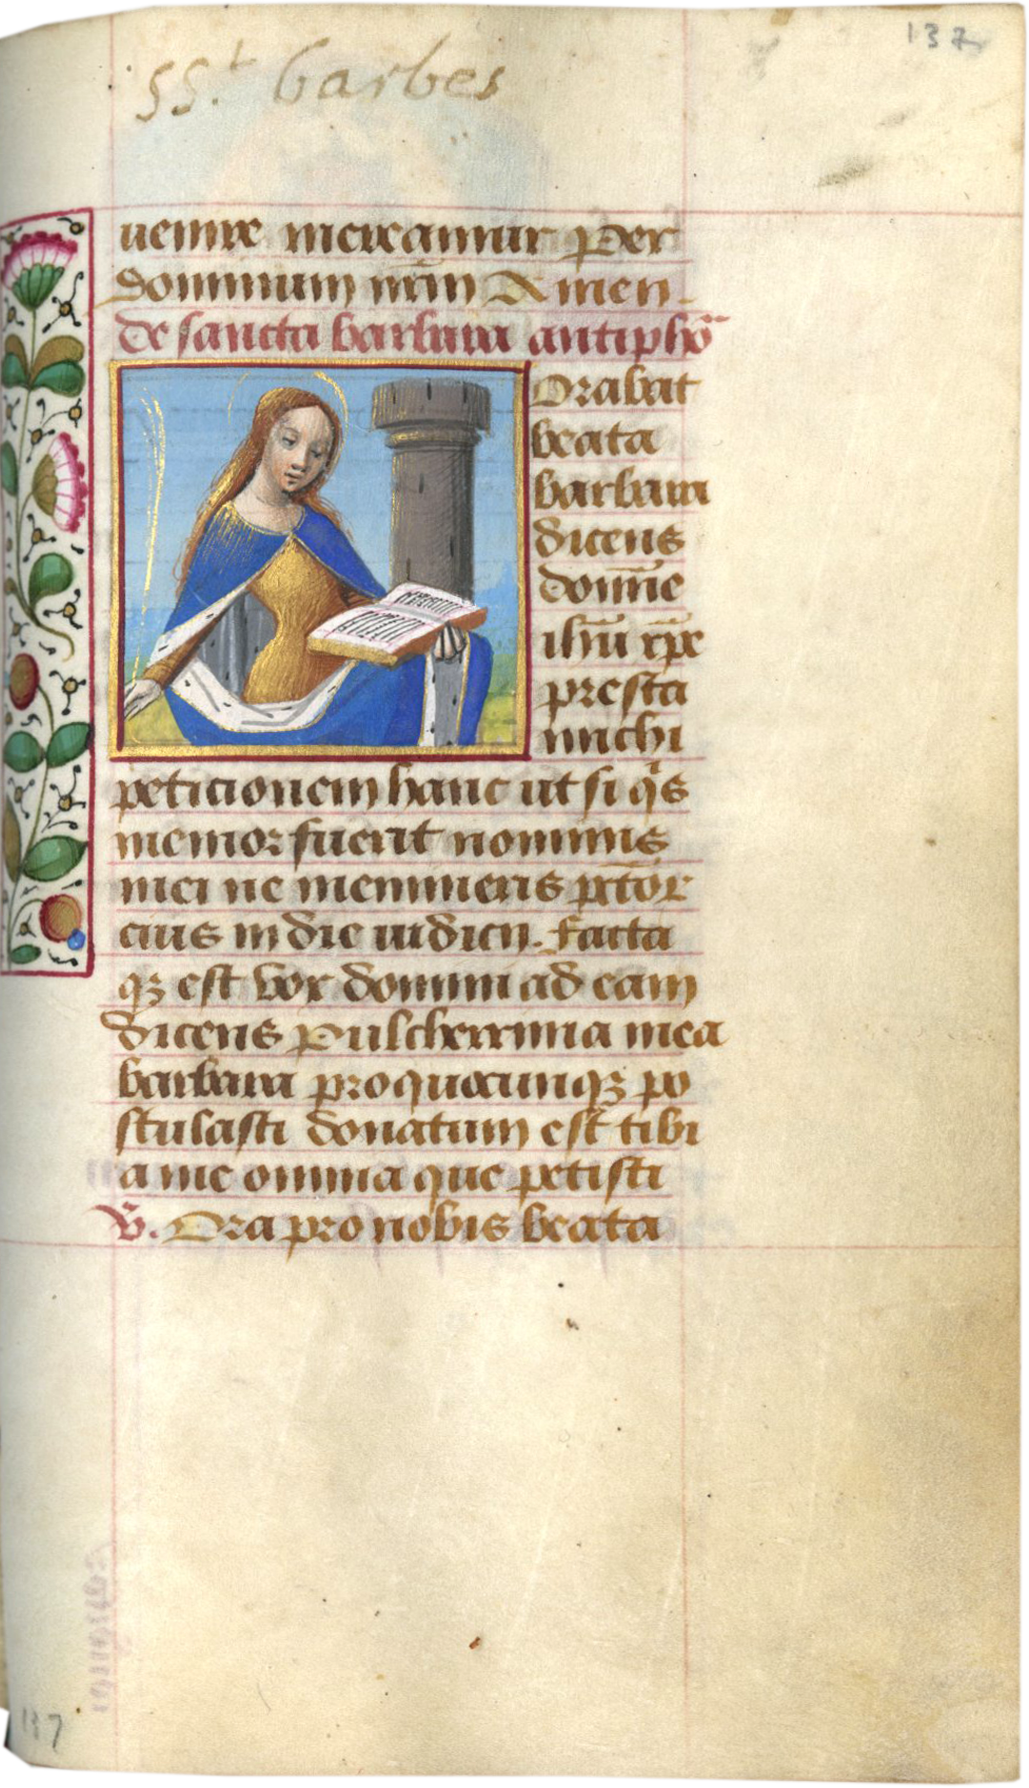 137
SS.t barbes
uenire mereamur Per
dominum nr̄m Amen
de sancta barbara antiphō
Orabat
beata
barbara
dicens
domīe
ihū xp̄e
presta
michi
peticionem hanc ut si qis
memor fuerit nominis
mei ne memineris pctōr
eius in die iudicij. facta
qꝫ est vox domini ad eam
dicens Pulcherrima mea
barbara pro quacunqꝫ po
stulasti donatum est tibi
a me omnia que petisti
V. Ora pro nobis beata
137